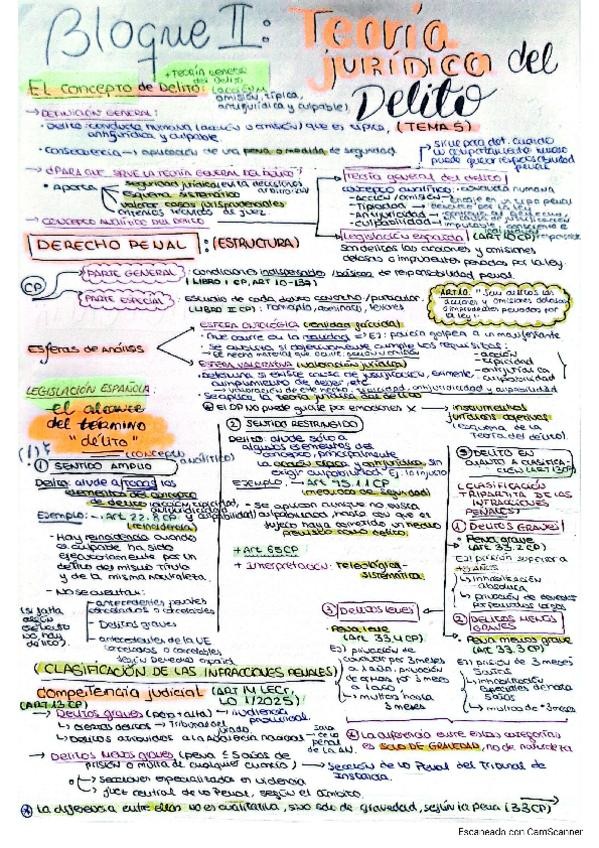 Bloque II: Teoría
jurídica del
Delito
+ TEORÍA GENERAL
del Delito
El concepto de Delito: (acción u
omisión, típica,
antijurídica y culpable)
→ DEFINICIÓN GENERAL:
• Delito: conducta humana (acción u omisión) que es típica, (TEMA 5)
antijurídica y culpable.
• Consecuencia → aplicación de una pena o medida de seguridad.
sirve para det. cuando
un comportamiento humano
puede generar responsabilidad
penal
→ ¿PARA QUE SIRVE LA TEORÍA GENERAL DEL DELITO?
• aporta
seguridad jurídica
esquema sistemático
valorar casos jurisprudenciales
criterios técnicos de juez
→ CONCEPTO ANALÍTICO DEL DELITO
Teoría general del delito
concepto analítico: conducta humana
- Acción/omisión
- Tipicidad
- Antijuricidad
- culpabilidad
→ Legislación española (ART 10 CP)
son delitos las acciones y omisiones
dolosas o imprudentes penadas por la ley.
DERECHO PENAL : (ESTRUCTURA)
CP
PARTE GENERAL : condiciones indispensables / básicas de responsabilidad penal.
(LIBRO I CP, ART 10-137)
PARTE ESPECIAL : Estudio de cada delito concreto / particular.
(LIBRO II CP) : homicidio, asesinato, lesiones
ART.10: " Son delitos las
acciones y omisiones dolosas
o imprudentes penadas por
la ley".
Esferas de Análisis
ESFERA ONTOLÓGICA (realidad fáctica)
- Qué ocurre en la realidad → Ej: policía golpea a un manifestante
ESFERA VALORATIVA (valoración jurídica)
- Determina si existe causa de justificación, eximente,
cumplimiento de deber, etc
- Se aplica la teoría jurídica del delito
- acción
- tipicidad
- antijurídica
- culpabilidad
⊛ El DP NO puede guiarse por emociones X → instrumentos
jurídicos objetivos
(esquema de la
Teoría del delito).
LEGISLACIÓN ESPAÑOLA:
el alcance
del término
"delito"
(concepto
analítico)
① SENTIDO AMPLIO
Delito: alude a todos los
elementos del concepto
de delito
Ejemplo: → Art 22.8 CP
(reincidencia)
- Hay reincidencia cuando
el culpable ha sido
ejecutoriamente por un
delito del mismo título
y de la misma naturaleza.
- NO se cuentan:
antecedentes penales
cancelados o cancelables
- Delitos graves
- antecedentes de la UE
cancelados o cancelables
según derecho español
② SENTIDO RESTRINGIDO
Delito: alude sólo a
algunos elementos del
concepto, principalmente
la acción típica y antijurídica, sin
exigir culpabilidad
Ejemplo: → Art 95.1.1 CP
(medidas de seguridad)
- se aplican aunque no exista
culpabilidad mientras que el
sujeto haya cometido un hecho
previsto como delito.
+ Art 6.5 CP
+ Interpretación: Teleológica-
sistemática
③ DELITO EN
CUANTO A CLASIFICA-
CIÓN (ART 13 CP)
(CLASIFICACIÓN
TRIPARTITA DE LAS
INFRACCIONES
PENALES)
① DELITOS GRAVES
• Pena grave
(Art 33.2 CP)
Ej: prisión superior a
5 años
inhabilitación
absoluta
privación de derechos
por periodos largos
② DELITOS MENOS
GRAVES
Pena menos grave
(ART 33.3 CP)
Ej: prisión de 3 meses
5 años
inhabilitación
especiales de hasta
5 años
multas de +3 meses
③ DELITOS LEVES
Pena leve
(ART 33.4 CP)
Ej: privación de
conducir por 3 meses
a 1 año. privación
de armas por 3 meses
a 1 año
multas hasta
3 meses
(CLASIFICACIÓN DE LAS INFRACCIONES PENALES)
Competencia judicial (ART 14 LECr,
LO 1/2025)
(ART 13 CP)
→ Delitos graves (pena +alta) → audiencia
provincial.
↳ ciertos delitos → Tribunal del
jurado.
↳ Delitos atribuidos a la audiencia nacional → Sala
de lo
penal
de la AN.
→ Delitos menos graves (pena ≤ 5 años de
prisión o multa de cualquier cuantía) → Sección de lo Penal del Tribunal de
Instancia.
↳ Secciones especializadas en violencia
↳ Juez central de lo Penal, según el ámbito.
⊛ La diferencia entre estas categorías
es SOLO DE GRAVEDAD, no de naturaleza
⊛ La diferencia entre ellas no es cualitativa, sino solo de gravedad, según la pena (33 CP)
Escaneado con CamScanner